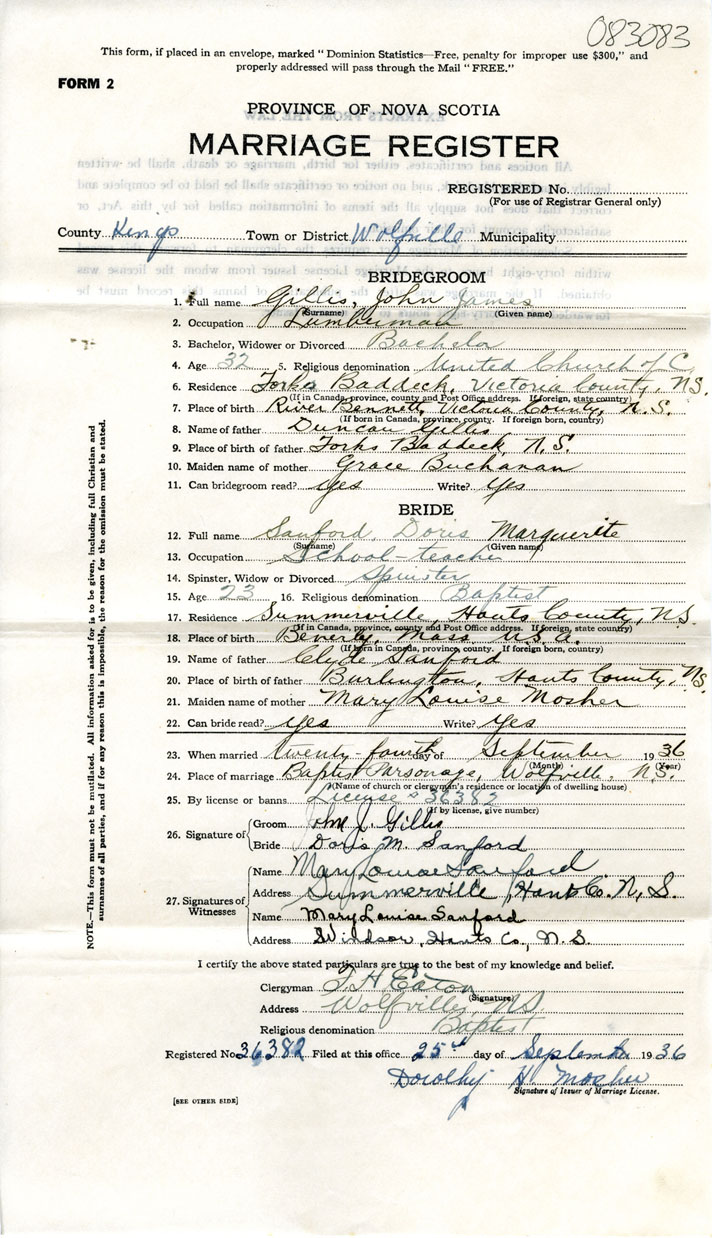 083083
This form, if placed in an envelope, marked "Dominion Statistics—Free, penalty for improper use $300," and
properly addressed will pass through the Mail "FREE."
FORM 2
PROVINCE OF NOVA SCOTIA
MARRIAGE REGISTER
REGISTERED No.
(For use of Registrar General only)
County Kings Town or District Wolfville Municipality
BRIDEGROOM
1. Full name Gillis, John James
(Surname) (Given name)
2. Occupation Lumberman
3. Bachelor, Widower or Divorced Bachelor
4. Age 32 5. Religious denomination United Church of C.
6. Residence Forks Baddeck, Victoria County, N.S.
(If in Canada, province, county and Post Office address. If foreign, state country)
7. Place of birth River Bennett, Victoria County, N.S.
(If born in Canada, province, county. If foreign born, country)
8. Name of father Duncan Gillis
9. Place of birth of father Forks Baddeck, N.S.
10. Maiden name of mother Grace Buchanan
11. Can bridegroom read? yes Write? yes
BRIDE
12. Full name Sanford, Doris Marguerite
(Surname) (Given name)
13. Occupation School-teacher
14. Spinster, Widow or Divorced Spinster
15. Age 23 16. Religious denomination Baptist
17. Residence Summerville, Hants County, N.S.
(If in Canada, province, county and Post Office address. If foreign, state country)
18. Place of birth Beverly, Mass U.S.A.
(If born in Canada, province, county. If foreign born, country)
19. Name of father Clyde Sanford
20. Place of birth of father Burlington, Hants County, N.S.
21. Maiden name of mother Mary Louise Mosher
22. Can bride read? yes Write? yes
23. When married twenty-fourth of September 1936
(Month) (Year)
24. Place of marriage Baptist Parsonage, Wolfville, N.S.
(Name of church or clergyman's residence or location of dwelling house)
25. By license or banns License # 36382
(If by license, give number)
26. Signature of
Groom John J. Gillis
Bride Doris M. Sanford
27. Signatures of Witnesses
Name Mary Louise Sanford
Address Summerville, Hants Co. N.S.
Name Mary Louise Sanford
Address Windsor, Hants Co., N.S.
I certify the above stated particulars are true to the best of my knowledge and belief.
Clergyman F. H. Eaton
(Signature)
Address Wolfville, N.S.
Religious denomination Baptist
Registered No. 36382 Filed at this office 25th day of September 1936
Dorothy H. Mosher
Signature of Issuer of Marriage License.
[SEE OTHER SIDE]
NOTE.—This form must not be mutilated. All information asked for is to be given, including full Christian and
surnames of all parties, and if for any reason this is impossible, the reason for the omission must be stated.